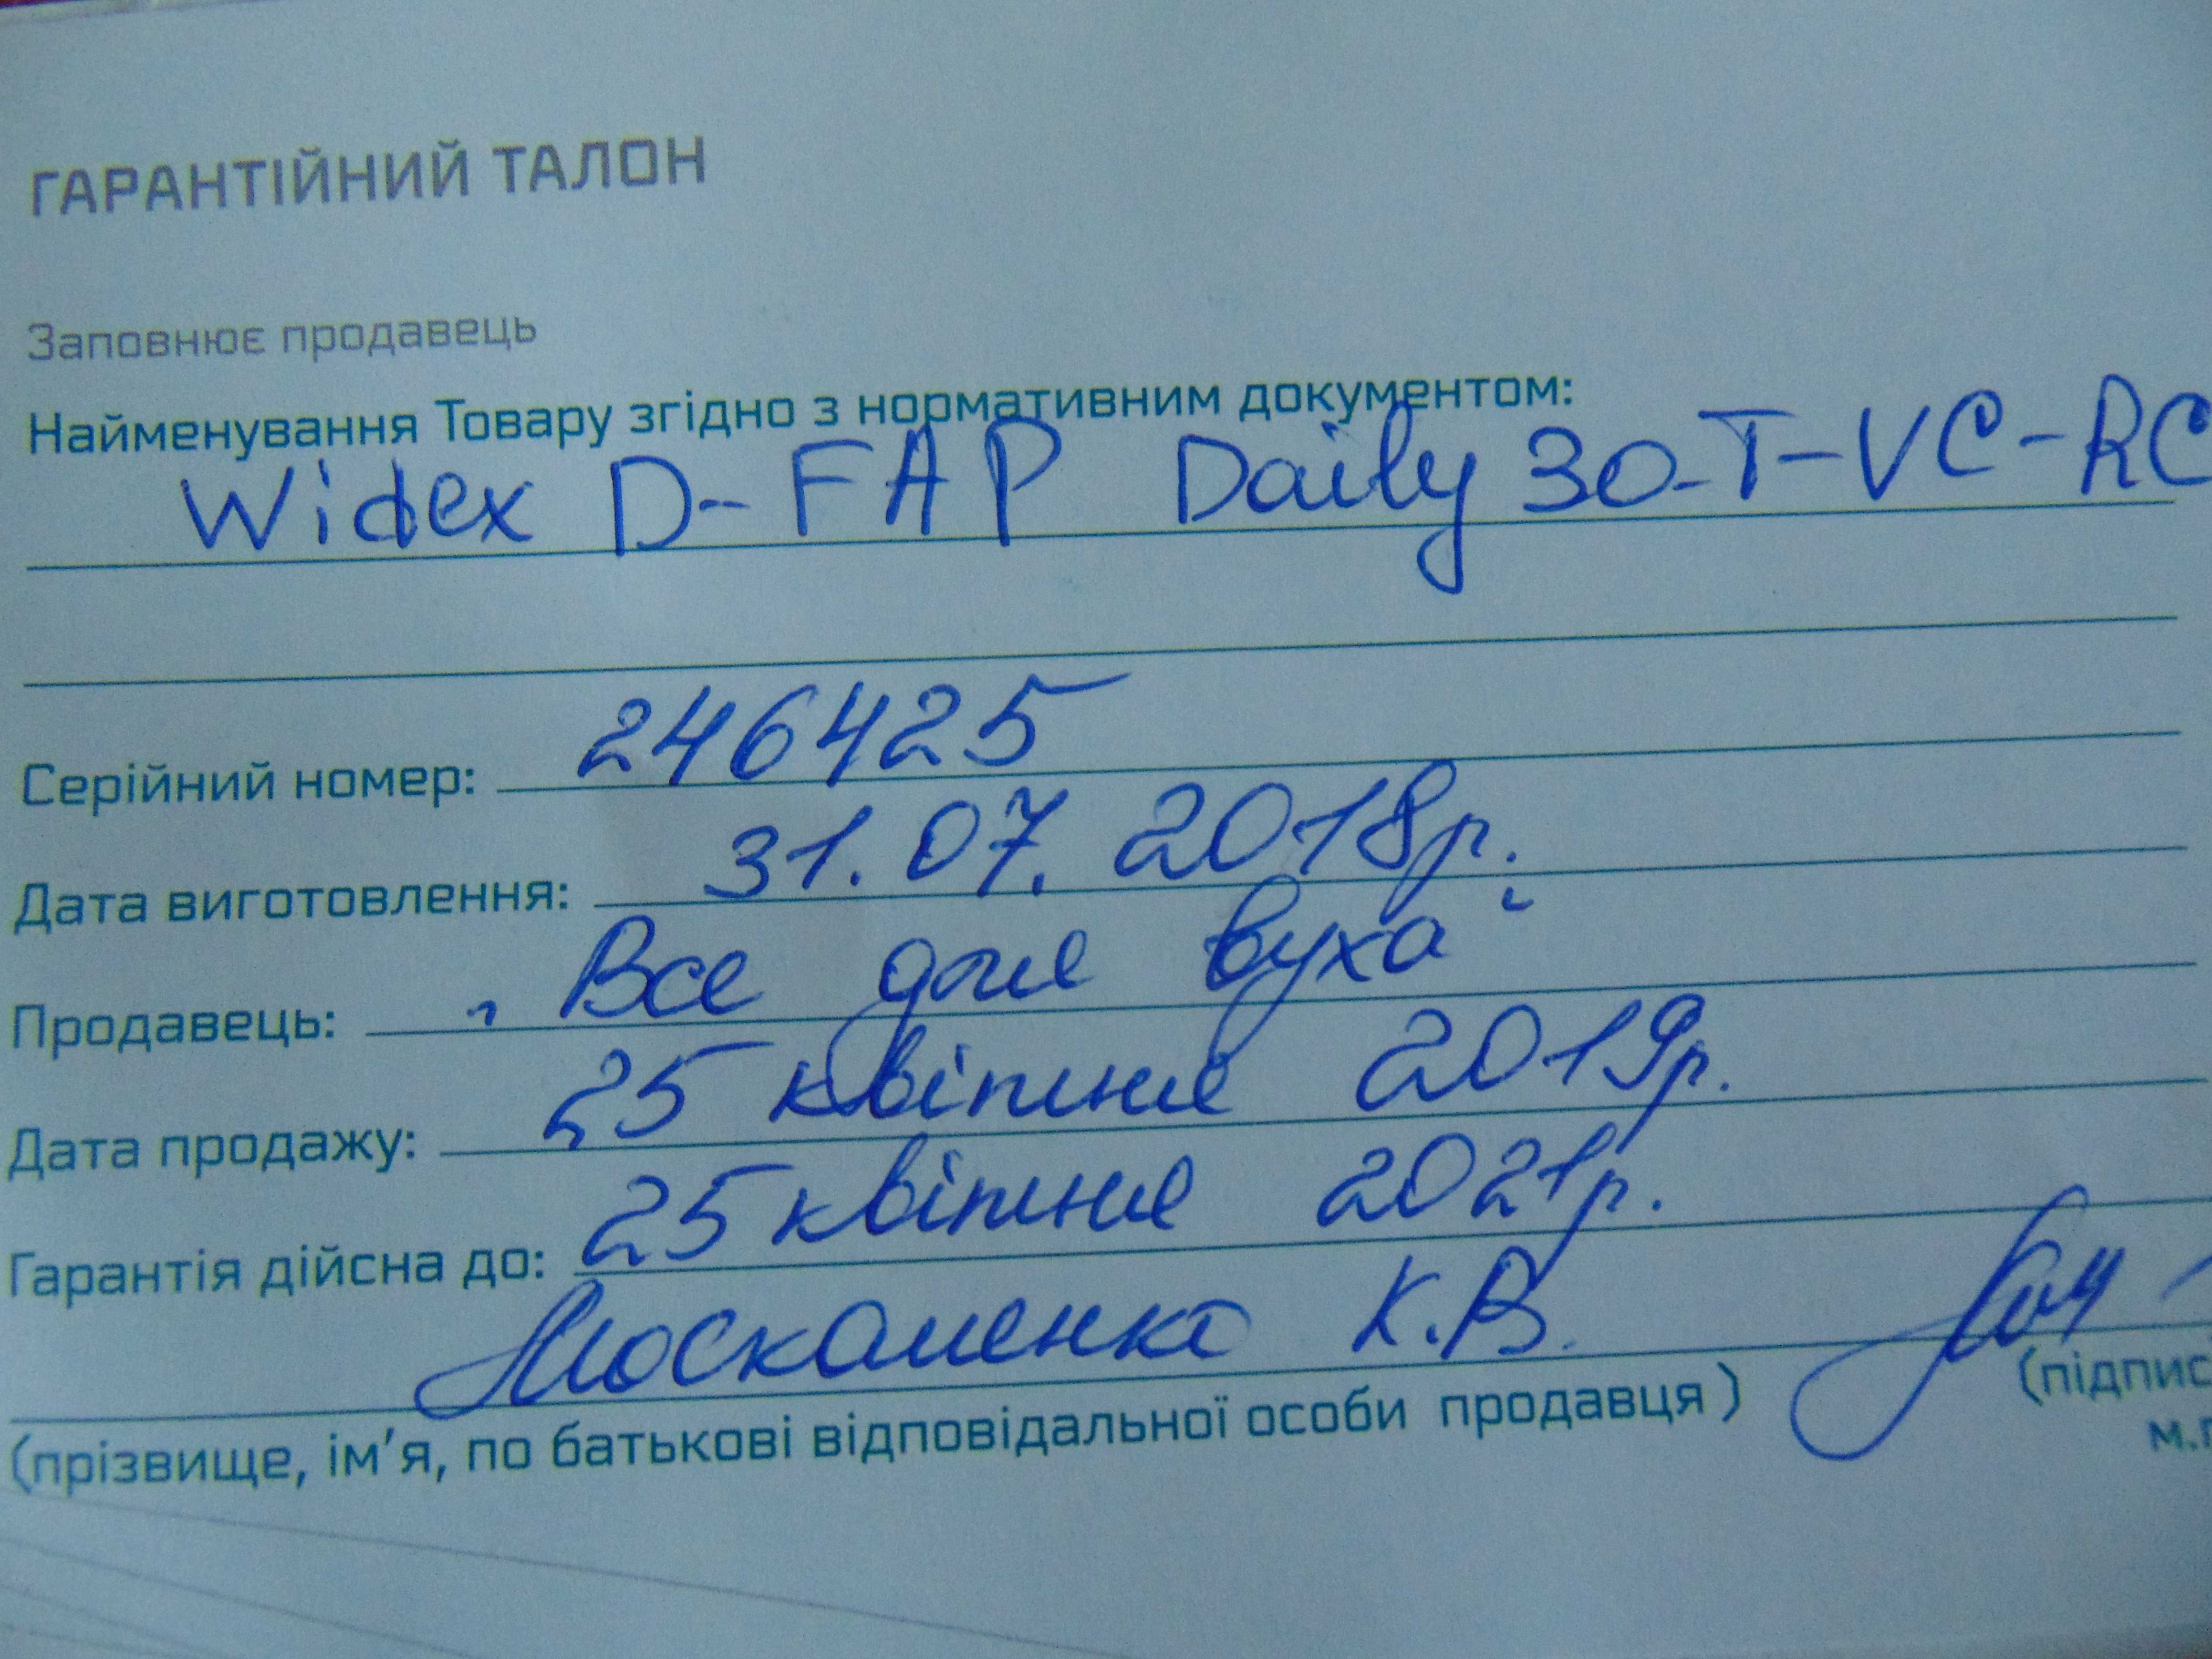 ГАРАНТІЙНИЙ ТАЛОН
Заповнює продавець
Найменування Товару згідно з нормативним документом:
Widex D-FAP Daily 30-T-VC-RC
Серійний номер: 246425
Дата виготовлення: 31.07.2018р.
Продавець: „Все для вуха"
Дата продажу: 25 квітня 2019р.
Гарантія дійсна до: 25 квітня 2021р.
Москаленко К.В.
(прізвище, ім’я, по батькові відповідальної особи продавця) (підпис
м.п